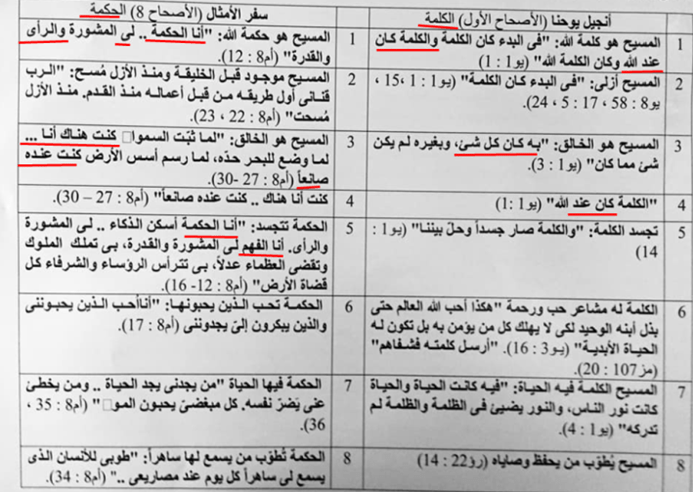 أنجيل يوحنا (الأصحاح الأول) الكلمة
سفر الأمثال (الأصحاح 8) الحكمة
1
المسيح هو كلمة الله: "فى البدء كان الكلمة والكلمة كان
عند الله وكان الكلمة الله" (يو1 : 1)
1
المسيح هو حكمة الله: "أنا الحكمة .. لى المشورة والرأى
والقدرة" (أم8 : 12).
2
المسيح أزلى: "فى البدء كان الكلمة" (يو1 : 1 ،15،
يو8 : 58 ، 17 : 5 ، 24).
2
المسيح موجود قبل الخليقة ومنذ الأزل مُسح: "الرب
قنانى أول طريقه من قبل أعماله منذ القدم. منذ الأزل
مُسحت" (أم8 : 22 ، 23).
3
المسيح هو الخالق: "به كان كل شئ، وبغيره لم يكن
شئ مما كان" (يو1 : 3).
3
المسيح هو الخالق: "لما ثبّت السموا كنت هناك أنا ...
لما وضع للبحر حدّه، لما رسم أسس الأرض كنت عنده
صانعاً" (أم8 : 27 -30).
4
"الكلمة كان عند الله" (يو1 :1)
4
كنت أنا هناك .. كنت عنده صانعاً" (أم8 : 27 – 30).
5
تجسد الكلمة: "والكلمة صار جسداً وحلّ بيننا" (يو1 :
14)
5
الحكمة تتجسد: "أنا الحكمة أسكن الذكاء .. لى المشورة
والرأى. أنا الفهم لى المشورة والقدرة، بى تملك الملوك
وتقضى العظماء عدلاً، بى تترأس الرؤساء والشرفاء كل
قضاة الأرض" (أم8 : 12- 16).
6
الكلمة له مشاعر حب ورحمة "هكذا أحب الله العالم حتى
بذل أبنه الوحيد لكى لا يهلك كل من يؤمن به بل تكون له
الحياة الأبدية" (يو3 : 16). "أرسل كلمته فشفاهم"
(مز107 : 20).
6
الحكمة تحب الذين يحبونها: "أناأحب الذين يحبوننى
والذين يبكرون إلىّ يجدوننى (أم8 : 17).
7
المسيح الكلمة فيه الحياة: "فيه كانت الحياة والحياة
كانت نور الناس، والنور يضيئ فى الظلمة والظلمة لم
تدركه" (يو1 : 4).
7
الحكمة فيها الحياة "من يجدنى يجد الحياة .. ومن يخطئ
عنى يَضرّ نفسه. كل مبغضىّ يحبون المو" (أم8 : 35 ،
36).
8
المسيح يُطوّب من يحفظ وصاياه (رؤ22 : 14)
8
الحكمة تُطوّب من يسمع لها ساهراً: "طوبى للأنسان الذى
يسمع لى ساهراً كل يوم عند مصاريعى .." (أم8 : 34).